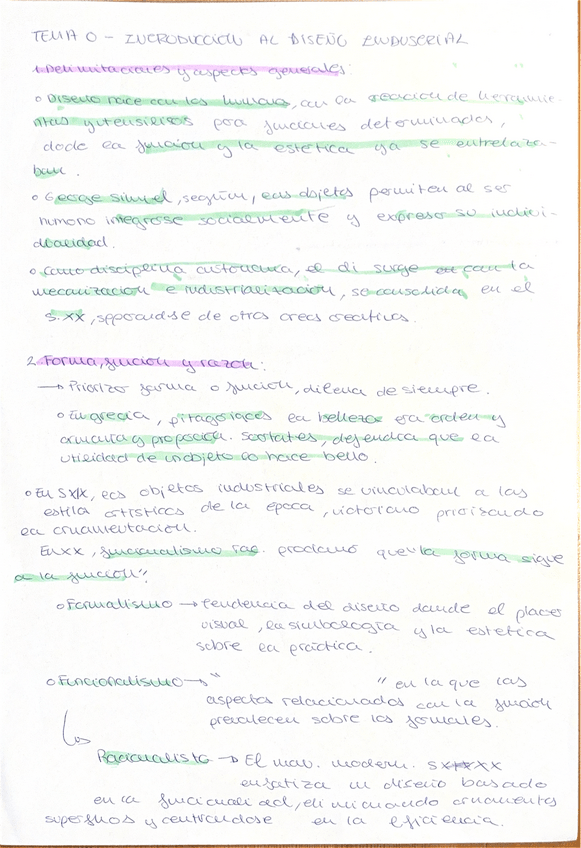 TEMA 0 - INTRODUCCIÓN AL DISEÑO INDUSTRIAL
1. Delimitaciones y aspectos generales:
o Diseño nace con los humanos, con la creación de herramie-
ntas y utensilios para funciones determinadas,
dode la función y la estética ya se entrelaza-
ban.
o George Simmel, según, los objetos permiten al ser
humano integrarse socialmente y expresar su indivi-
dualidad.
o Como disciplina autónoma, el di surge con la
mecanización e industrialización, se consolida en el
S.XX, separandose de otras areas creativas.
2. Forma, función y razón:
→ Priorizar forma o función, dilema de siempre.
o En grecia, pitagóricos la belleza era orden y
armonía y proporción. Socrates, defendía que la
utilidad de un objeto lo hace bello.
o En SXIX, los objetos industriales se vinculaban a los
estilos artísticos de la época, victoriano priorizando
la ornamentación.
En XX, funcionalismo rac. proclamó que "la forma sigue
a la función".
o Formalismo → tendencia del diseño donde el placer
visual, la simbología y la estética
sobre la práctica.
o Funcionalismo → " " en la que los
aspectos relacionados con la función
prevalecen sobre los formales.
Racionalista → El mov. modern. SXX
enfatiza un diseño basado
en la funcionalidad, eliminando ornamentos
superfluos y centrándose en la eficiencia.